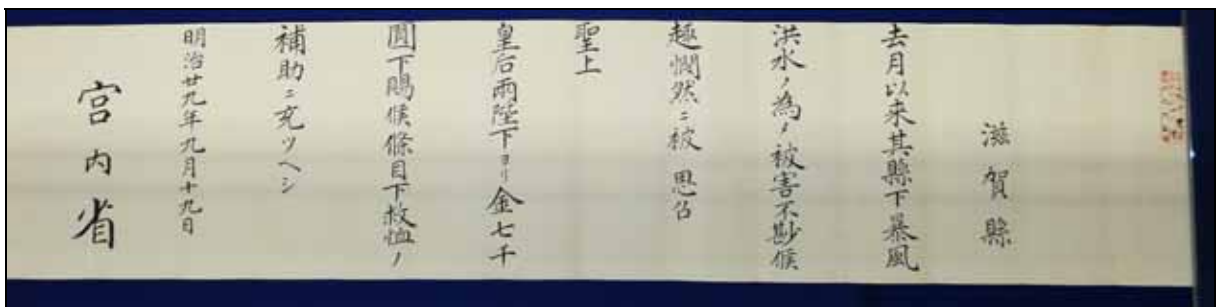 滋賀縣
去月以来其縣下暴風
洪水ノ為メ被害不尠候
趣憫然ニ被 思召
聖上
皇后兩陛下ヨリ金七千
圓下賜候條目下救恤ノ
補助ニ充ツヘシ
明治廿九年九月十九日
宮内省